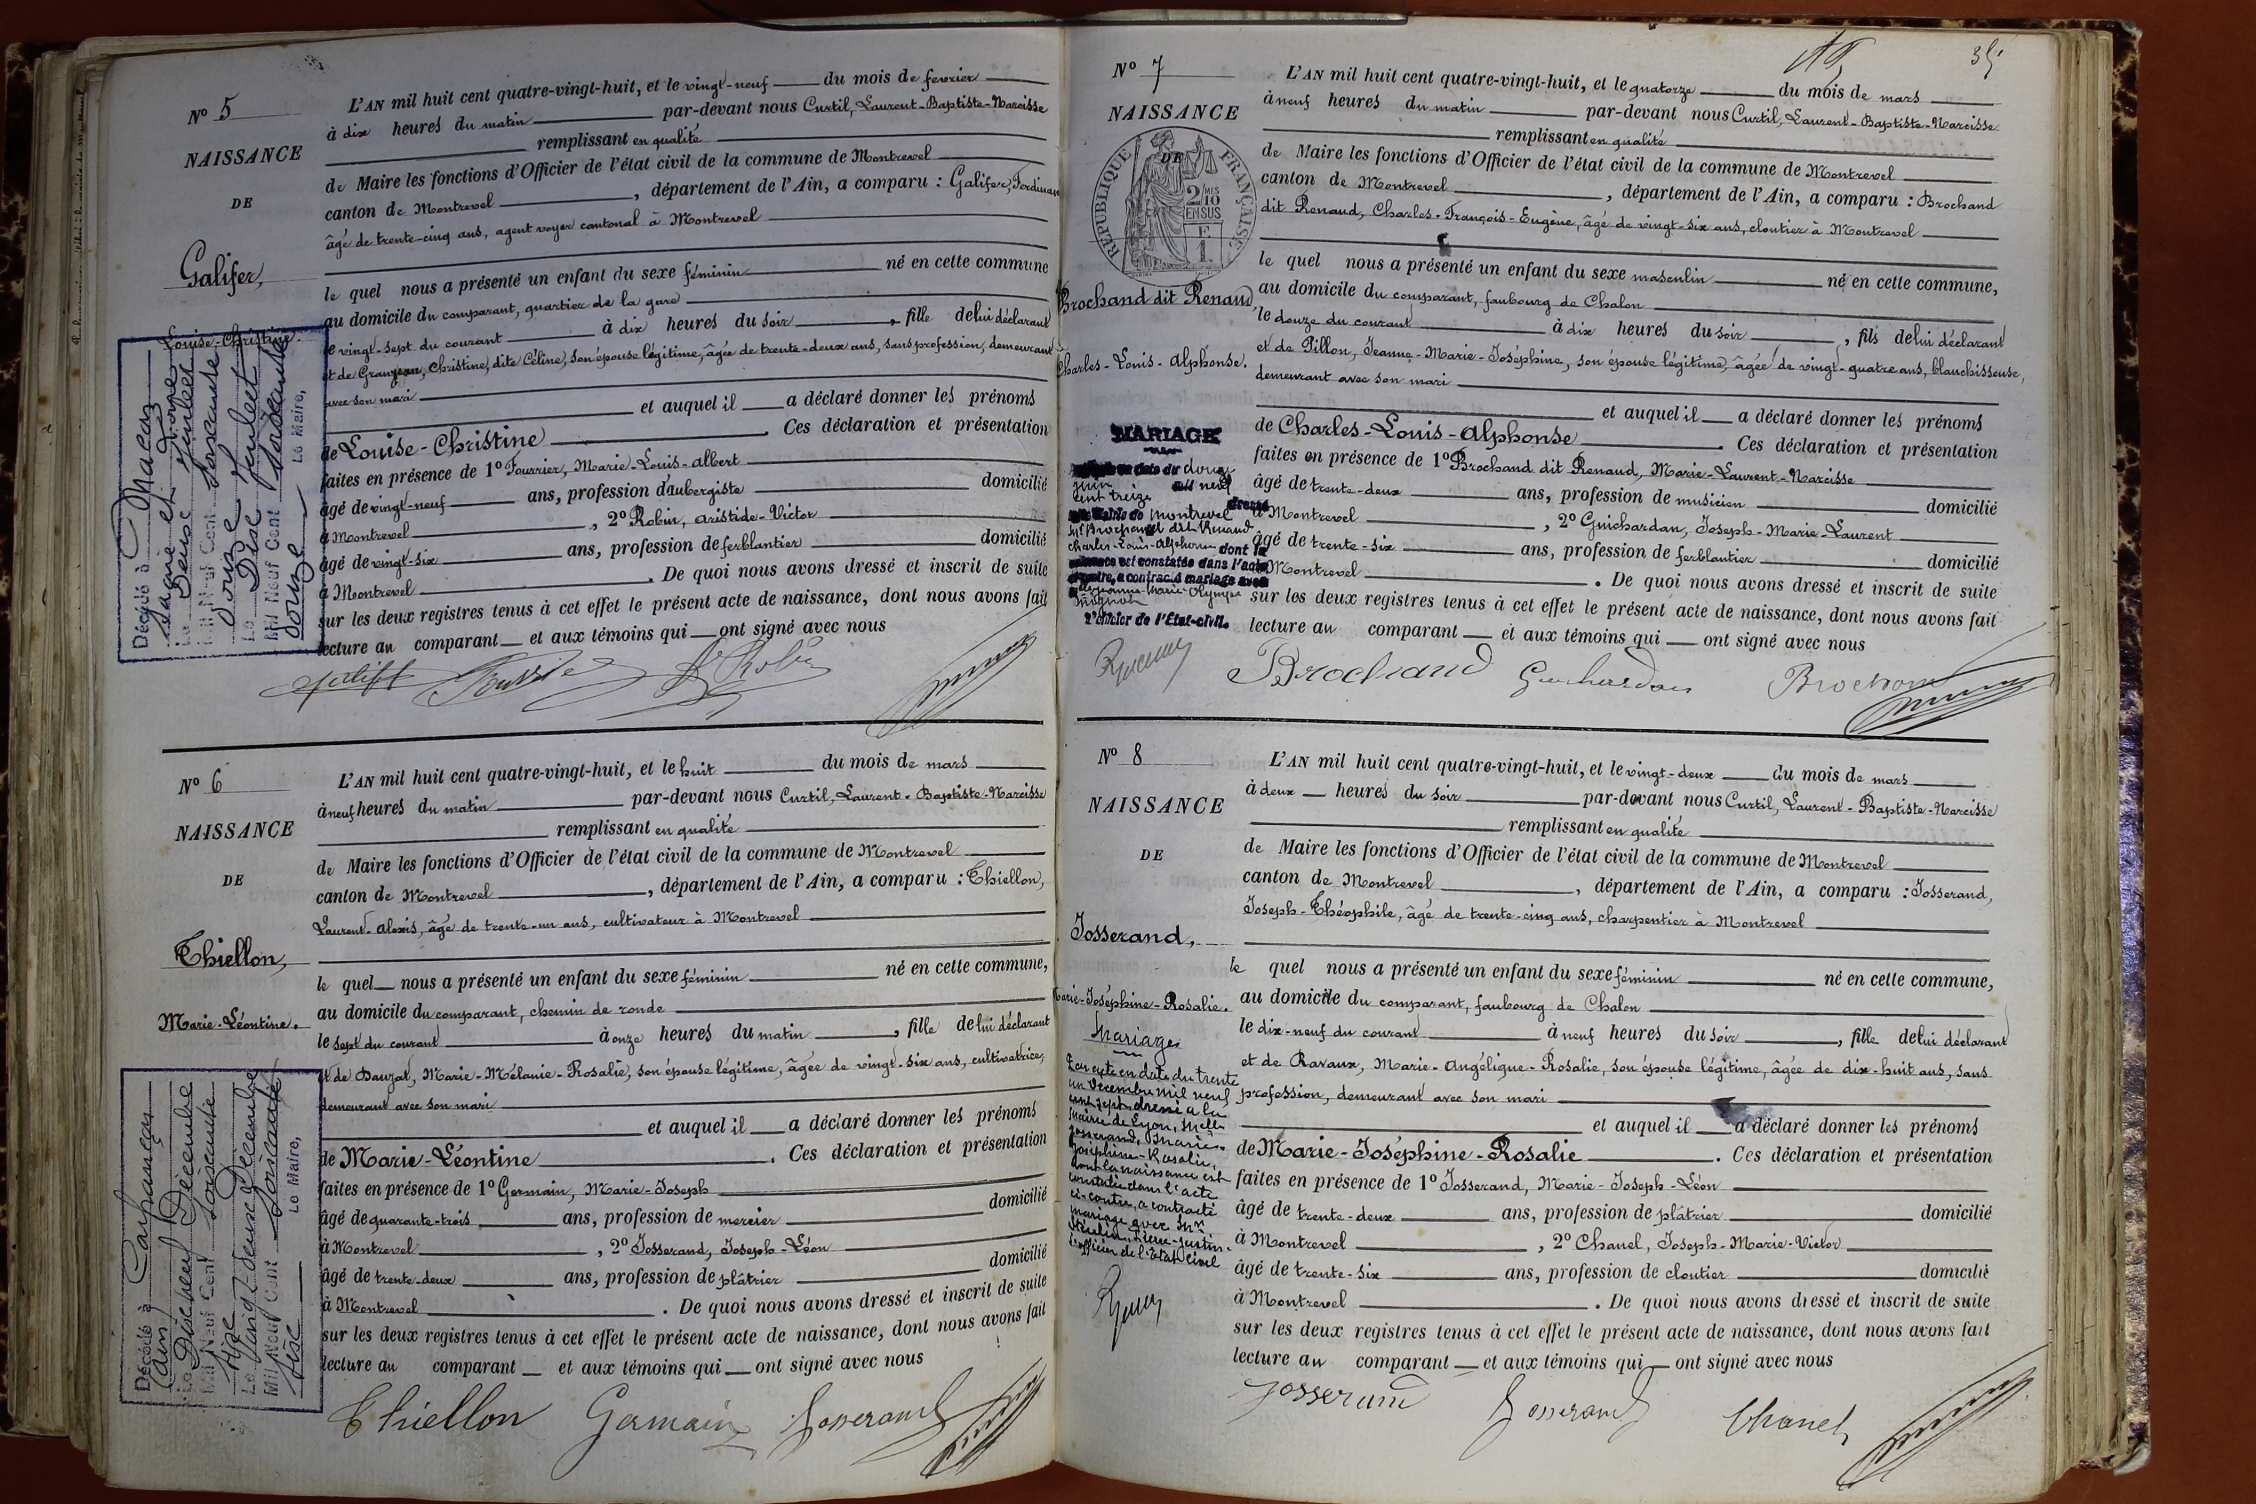 Nº 5
NAISSANCE
DE
Galifer,
Louise-Christine.
L'AN mil huit cent quatre-vingt-huit, et le vingt-neuf du mois de fevrier
à dix heures du matin par-devant nous Curtil, Laurent-Baptiste-Narcisse
remplissant en qualité
de Maire les fonctions d'Officier de l'état civil de la commune de Montrevel
canton de Montrevel , département de l'Ain, a comparu : Galifer, Ferdinan
âgé de trente-cinq ans, agent voyer cantonal à Montrevel
le quel nous a présenté un enfant du sexe féminin né en cette commune
au domicile du comparant, quartier de la gare
le vingt-sept du courant à dix heures du soir , fille de lui déclarant
et de Grangean, Christine, dite Céline, son épouse légitime, âgée de trente-deux ans, sans profession, demeurant
avec son mari
et auquel il a déclaré donner les prénoms
de Louise-Christine . Ces déclaration et présentation
faites en présence de 1º Fourrier, Marie-Louis-Albert
âgé de vingt-neuf ans, profession d'aubergiste domicilié
à Montrevel , 2º Robin, Aristide-Victor
âgé de vingt-six ans, profession de ferblantier domicilié
à Montrevel . De quoi nous avons dressé et inscrit de suite
sur les deux registres tenus à cet effet le présent acte de naissance, dont nous avons fait
lecture au comparant et aux témoins qui ont signé avec nous
Décédé à Macon
Saône et
Le Deuse Juillet
Mil Neuf Cent soixante
Le Juillet
Mil Neuf Cent soixante
Le Maire,
Nº 6
NAISSANCE
DE
Thiellon,
Marie-Léontine.
L'AN mil huit cent quatre-vingt-huit, et le huit du mois de mars
à neuf heures du matin par-devant nous Curtil, Laurent-Baptiste-Narcisse
remplissant en qualité
de Maire les fonctions d'Officier de l'état civil de la commune de Montrevel
canton de Montrevel , département de l'Ain, a comparu : Thiellon,
Laurent-Alexis, âgé de trente-un ans, cultivateur à Montrevel
le quel nous a présenté un enfant du sexe féminin né en cette commune,
au domicile du comparant, chemin de ronde
le sept du courant à onze heures du matin , fille de lui déclarant
et de Dauzat, Marie-Mélanie-Rosalie, son épouse légitime, âgée de vingt-six ans, cultivatrice,
demeurant avec son mari
et auquel il a déclaré donner les prénoms
de Marie-Léontine . Ces déclaration et présentation
faites en présence de 1º Germain, Marie-Joseph
âgé de quarante-trois ans, profession de mercier domicilié
à Montrevel , 2º Josserand, Joseph-Léon
âgé de trente-deux ans, profession de plâtrier domicilié
à Montrevel . De quoi nous avons dressé et inscrit de suite
sur les deux registres tenus à cet effet le présent acte de naissance, dont nous avons fait
lecture au comparant et aux témoins qui ont signé avec nous
Thiellon Germain Josserand
Décédé à
(Ain)
Le Décembre
Mil Neuf Cent soixante
Le Vingt-deux Décembre
Mil Neuf Cent soixante
Le Maire,
35
Nº 7
NAISSANCE
RÉPUBLIQUE FRANÇAISE
DE
2 MES
10
EN SUS
F
1.
Brochand dit Renaud
Charles-Louis-Alphonse.
L'AN mil huit cent quatre-vingt-huit, et le quatorze du mois de mars
à neuf heures du matin par-devant nous Curtil, Laurent-Baptiste-Narcisse
remplissant en qualité
de Maire les fonctions d'Officier de l'état civil de la commune de Montrevel
canton de Montrevel , département de l'Ain, a comparu : Brochand
dit Renaud, Charles-François-Eugène, âgé de vingt-six ans, cloutier à Montrevel
le quel nous a présenté un enfant du sexe masculin né en cette commune,
au domicile du comparant, faubourg de Chalon
le douze du courant à dix heures du soir , fils de lui déclarant
et de Pillon, Jeanne-Marie-Joséphine, son épouse légitime, âgée de vingt-quatre ans, blanchisseuse,
demeurant avec son mari
et auquel il a déclaré donner les prénoms
de Charles-Louis-Alphonse . Ces déclaration et présentation
faites en présence de 1º Brochand dit Renaud, Marie-Laurent-Narcisse
âgé de trente-deux ans, profession de musicien domicilié
à Montrevel , 2º Guichardan, Joseph-Marie-Laurent
âgé de trente-six ans, profession de ferblantier domicilié
à Montrevel . De quoi nous avons dressé et inscrit de suite
sur les deux registres tenus à cet effet le présent acte de naissance, dont nous avons fait
lecture au comparant et aux témoins qui ont signé avec nous
Brochand Guichardan Brochand
MARIAGE
en date du douze
juin mil neuf
cent treize dressé
Mairie de Montrevel
Mr Brochand dit Renaud
Charles-Louis-Alphonse dont la
naissance est constatée dans l'acte
ci-contre, a contracté mariage avec
Marie Olympe
L'officier de l'État-civil.
Nº 8
NAISSANCE
DE
Josserand,
Marie-Joséphine-Rosalie.
L'AN mil huit cent quatre-vingt-huit, et le vingt-deux du mois de mars
à deux heures du soir par-devant nous Curtil, Laurent-Baptiste-Narcisse
remplissant en qualité
de Maire les fonctions d'Officier de l'état civil de la commune de Montrevel
canton de Montrevel , département de l'Ain, a comparu : Josserand,
Joseph-Théophile, âgé de trente-cinq ans, charpentier à Montrevel
le quel nous a présenté un enfant du sexe féminin né en cette commune,
au domicile du comparant, faubourg de Chalon
le dix-neuf du courant à neuf heures du soir , fille de lui déclarant
et de Ravaux, Marie-Angélique-Rosalie, son épouse légitime, âgée de dix-huit ans, sans
profession, demeurant avec son mari
et auquel il a déclaré donner les prénoms
de Marie-Joséphine-Rosalie . Ces déclaration et présentation
faites en présence de 1º Josserand, Marie-Joseph-Léon
âgé de trente-deux ans, profession de plâtrier domicilié
à Montrevel , 2º Chanel, Joseph-Marie-Victor
âgé de trente-six ans, profession de cloutier domicilié
à Montrevel . De quoi nous avons dressé et inscrit de suite
sur les deux registres tenus à cet effet le présent acte de naissance, dont nous avons fait
lecture au comparant et aux témoins qui ont signé avec nous
Josserand Josserand Chanel
Mariage
Par acte en date du trente
un Décembre mil neuf
cent sept dressé à la
Mairie de Lyon, Melle
Josserand, Marie-
Joséphine-Rosalie,
dont la naissance est
constatée dans l'acte
ci-contre, a contracté
mariage avec Mr
Pierre-Justin.
L'officier de l'État Civil